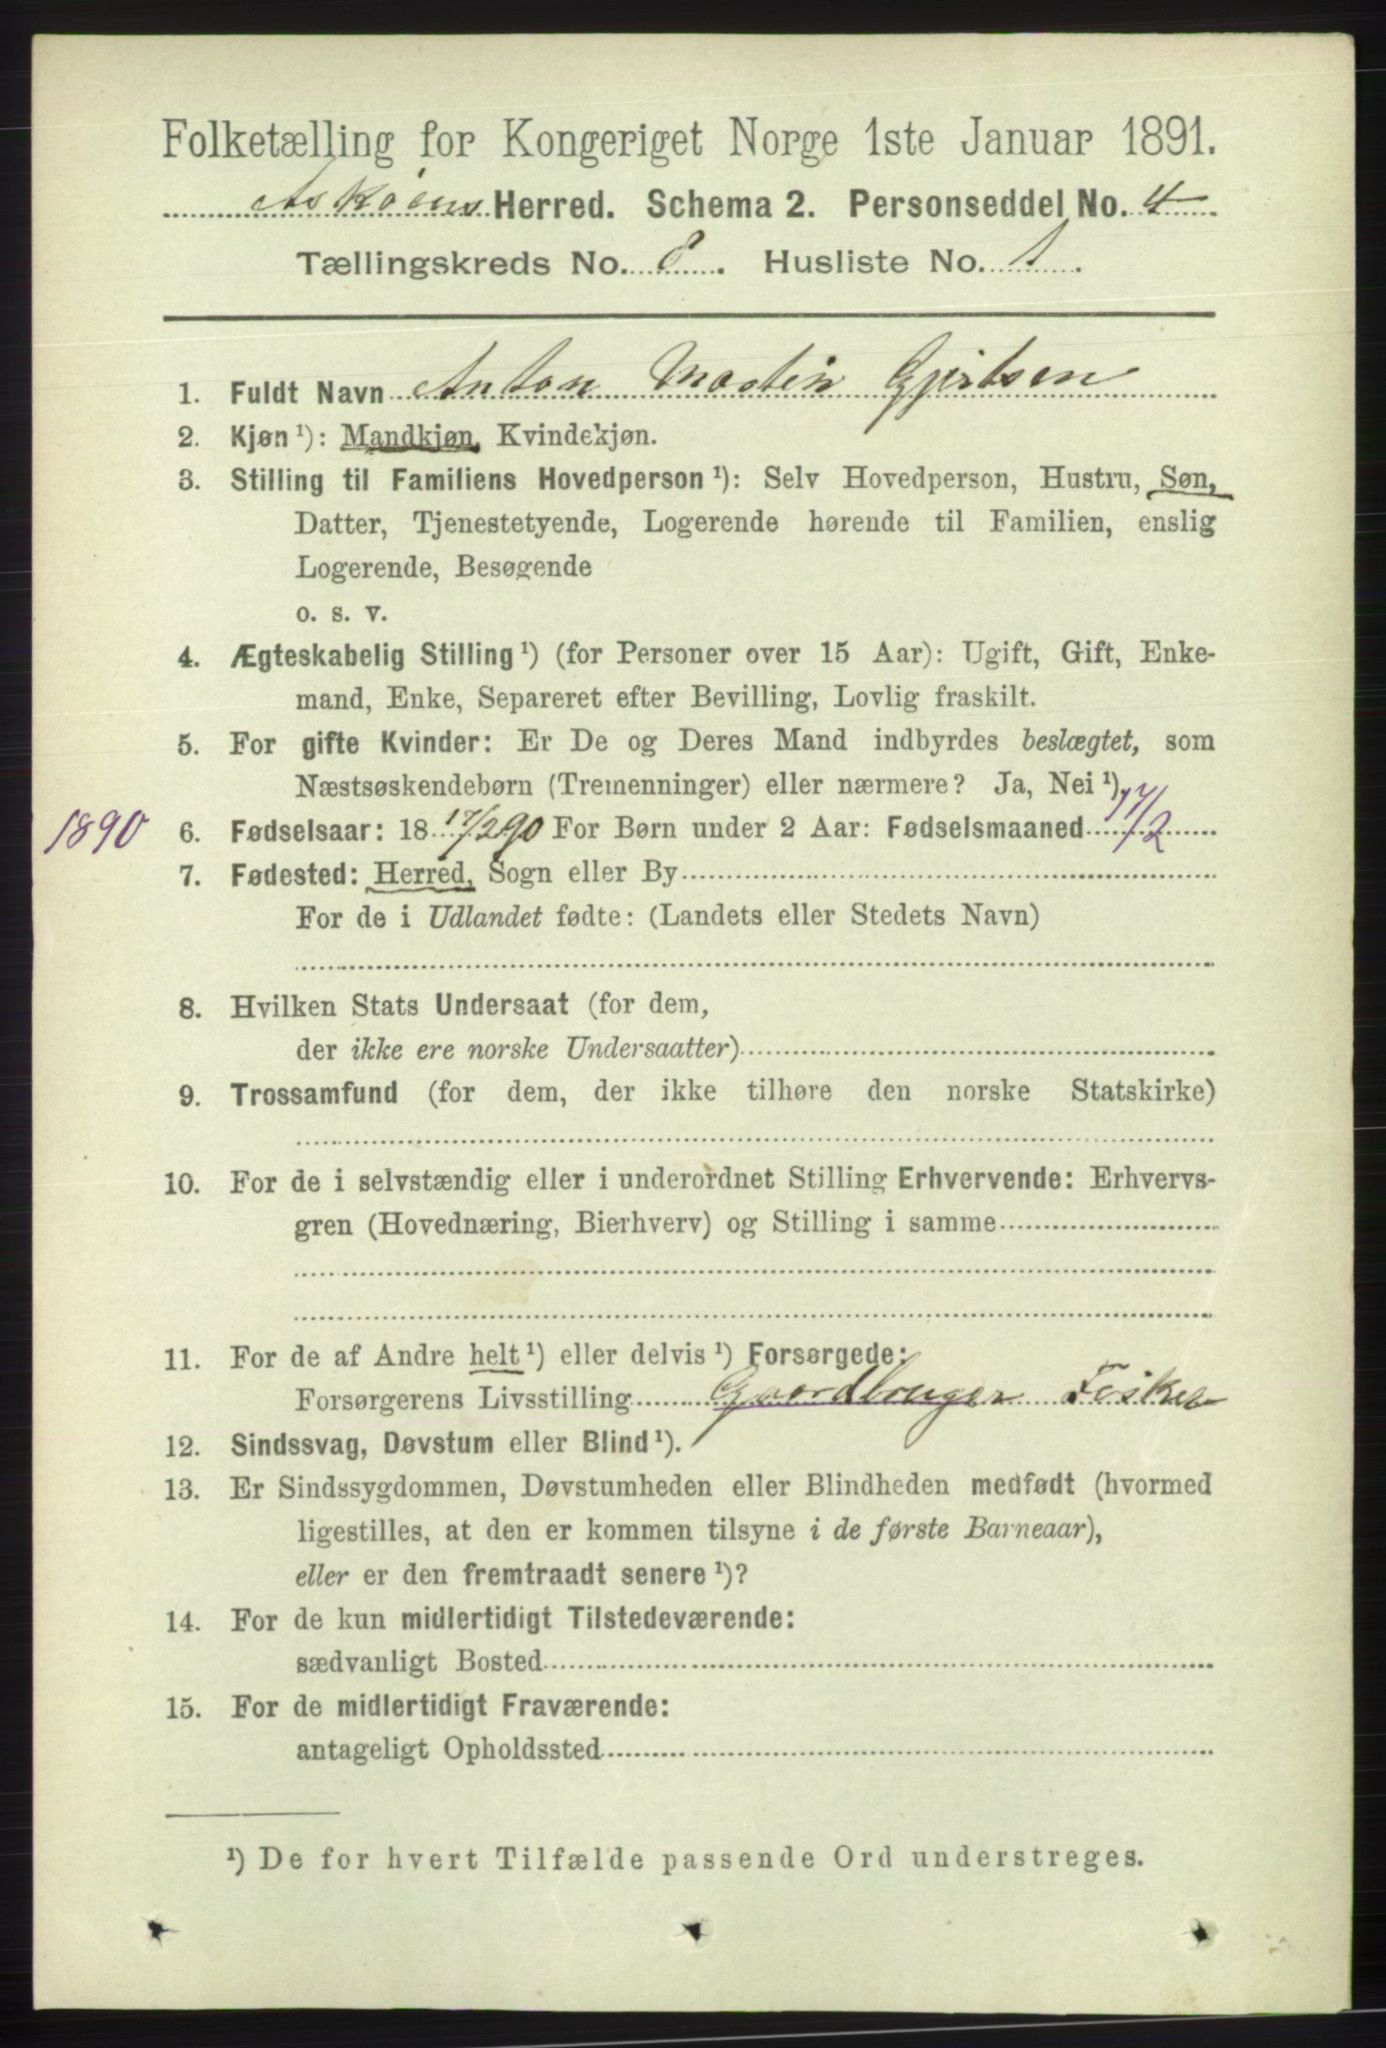 Folketælling for Kongeriget Norge 1ste Januar 1891.
Askøens Herred. Schema 2. Personseddel No. 4
Tællingskreds No. 8. Husliste No. 1.
1. Fuldt Navn Anton Martin Gjertsen
2. Kjøn ¹): Mandkjøn, Kvindekjøn.
3. Stilling til Familiens Hovedperson ¹): Selv Hovedperson, Hustru, Søn,
Datter, Tjenestetyende, Logerende hørende til Familien, enslig
Logerende, Besøgende
o. s. v.
4. Ægteskabelig Stilling ¹) (for Personer over 15 Aar): Ugift, Gift, Enke-
mand, Enke, Separeret efter Bevilling, Lovlig fraskilt.
5. For gifte Kvinder: Er De og Deres Mand indbyrdes beslægtet, som
Næstsøskendebørn (Tremenninger) eller nærmere? Ja, Nei ¹),
1890 6. Fødselsaar: 18 17/2 90 For Børn under 2 Aar: Fødselsmaaned 17/2
7. Fødested: Herred, Sogn eller By
For de i Udlandet fødte: (Landets eller Stedets Navn)
8. Hvilken Stats Undersaat (for dem,
der ikke ere norske Undersaatter)
9. Trossamfund (for dem, der ikke tilhøre den norske Statskirke)
10. For de i selvstændig eller i underordnet Stilling Erhvervende: Erhvervs-
gren (Hovednæring, Bierhverv) og Stilling i samme
11. For de af Andre helt ¹) eller delvis ¹) Forsørgede:
Forsørgerens Livsstilling Gaardbruger Fisker
12. Sindssvag, Døvstum eller Blind ¹).
13. Er Sindssygdommen, Døvstumheden eller Blindheden medfødt (hvormed
ligestilles, at den er kommen tilsyne i de første Barneaar),
eller er den fremtraadt senere ¹)?
14. For de kun midlertidigt Tilstedeværende:
sædvanligt Bosted
15. For de midlertidigt Fraværende:
antageligt Opholdssted
¹) De for hvert Tilfælde passende Ord understreges.